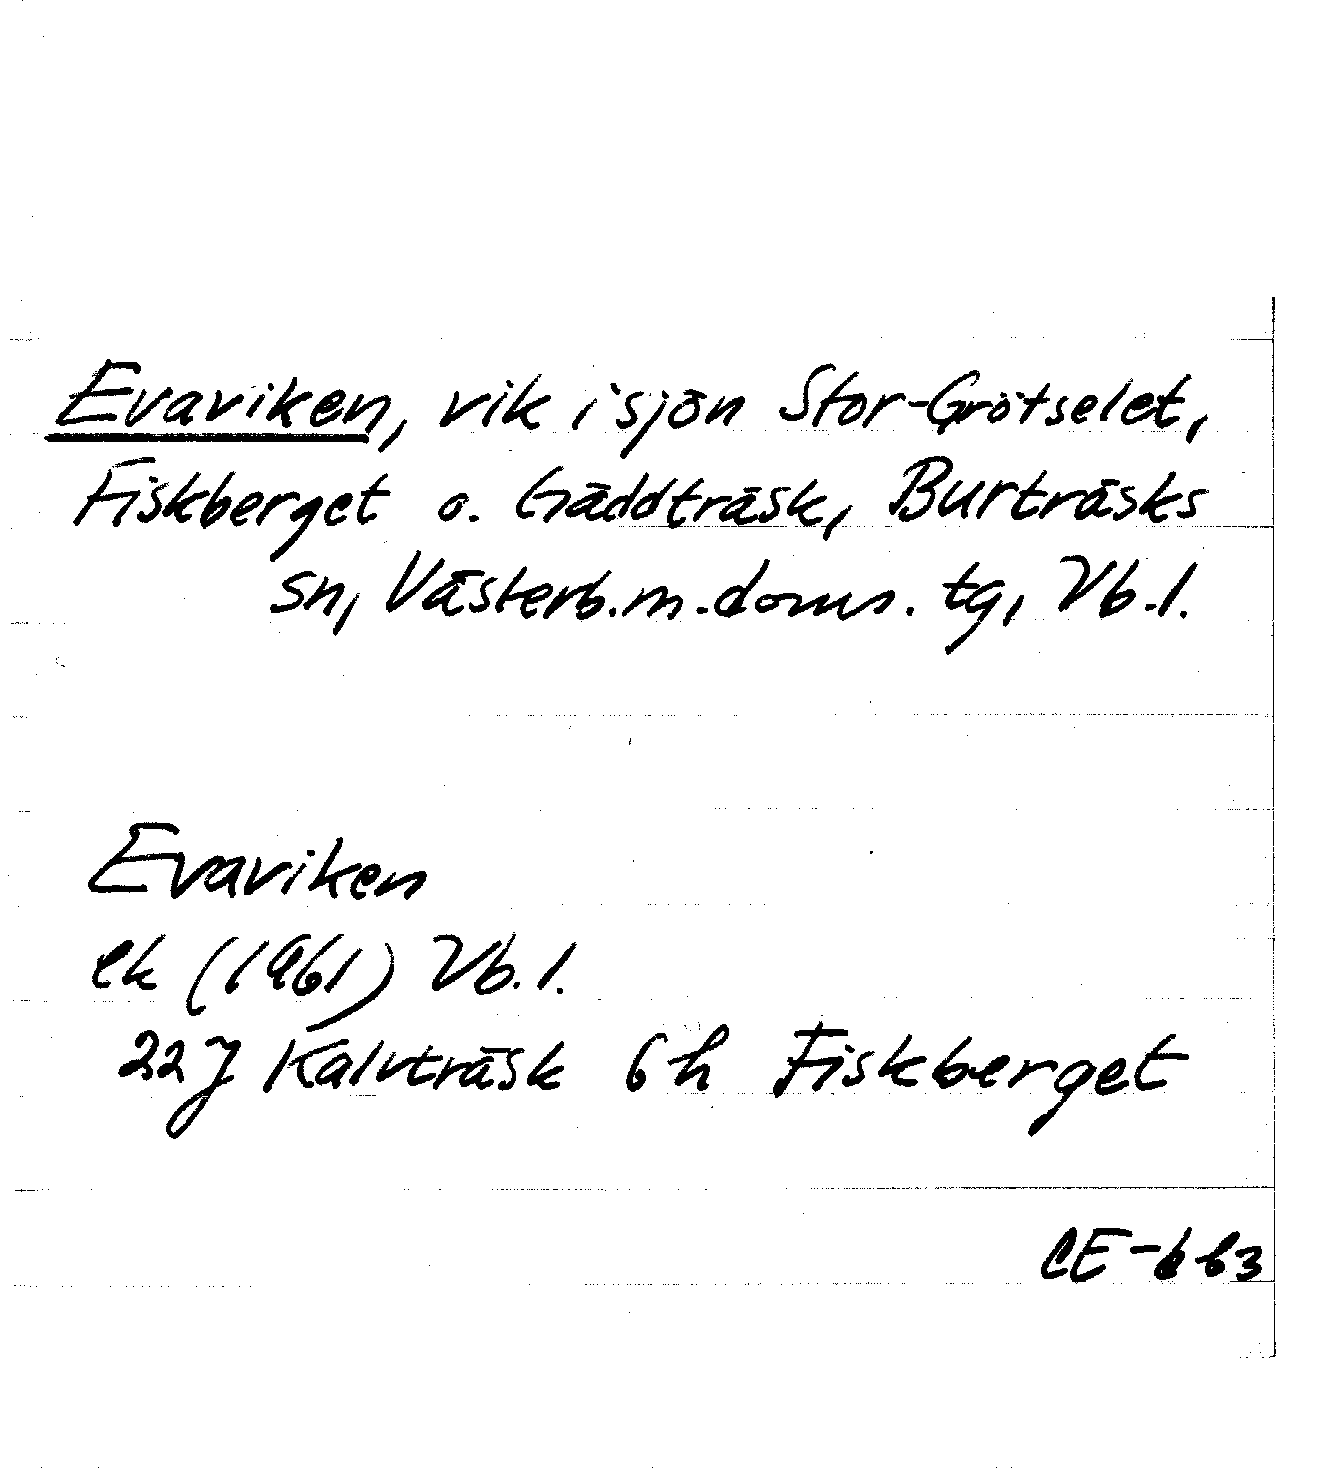 Evaviken, vik i sjön Stor-Grötselet,
Fiskberget o. Gäddträsk, Burträsks
sn, Västerb.m.doms. tg, Vb.l.
Evaviken
ek (1961) Vb.l.
22J Kalvträsk 6h Fiskberget